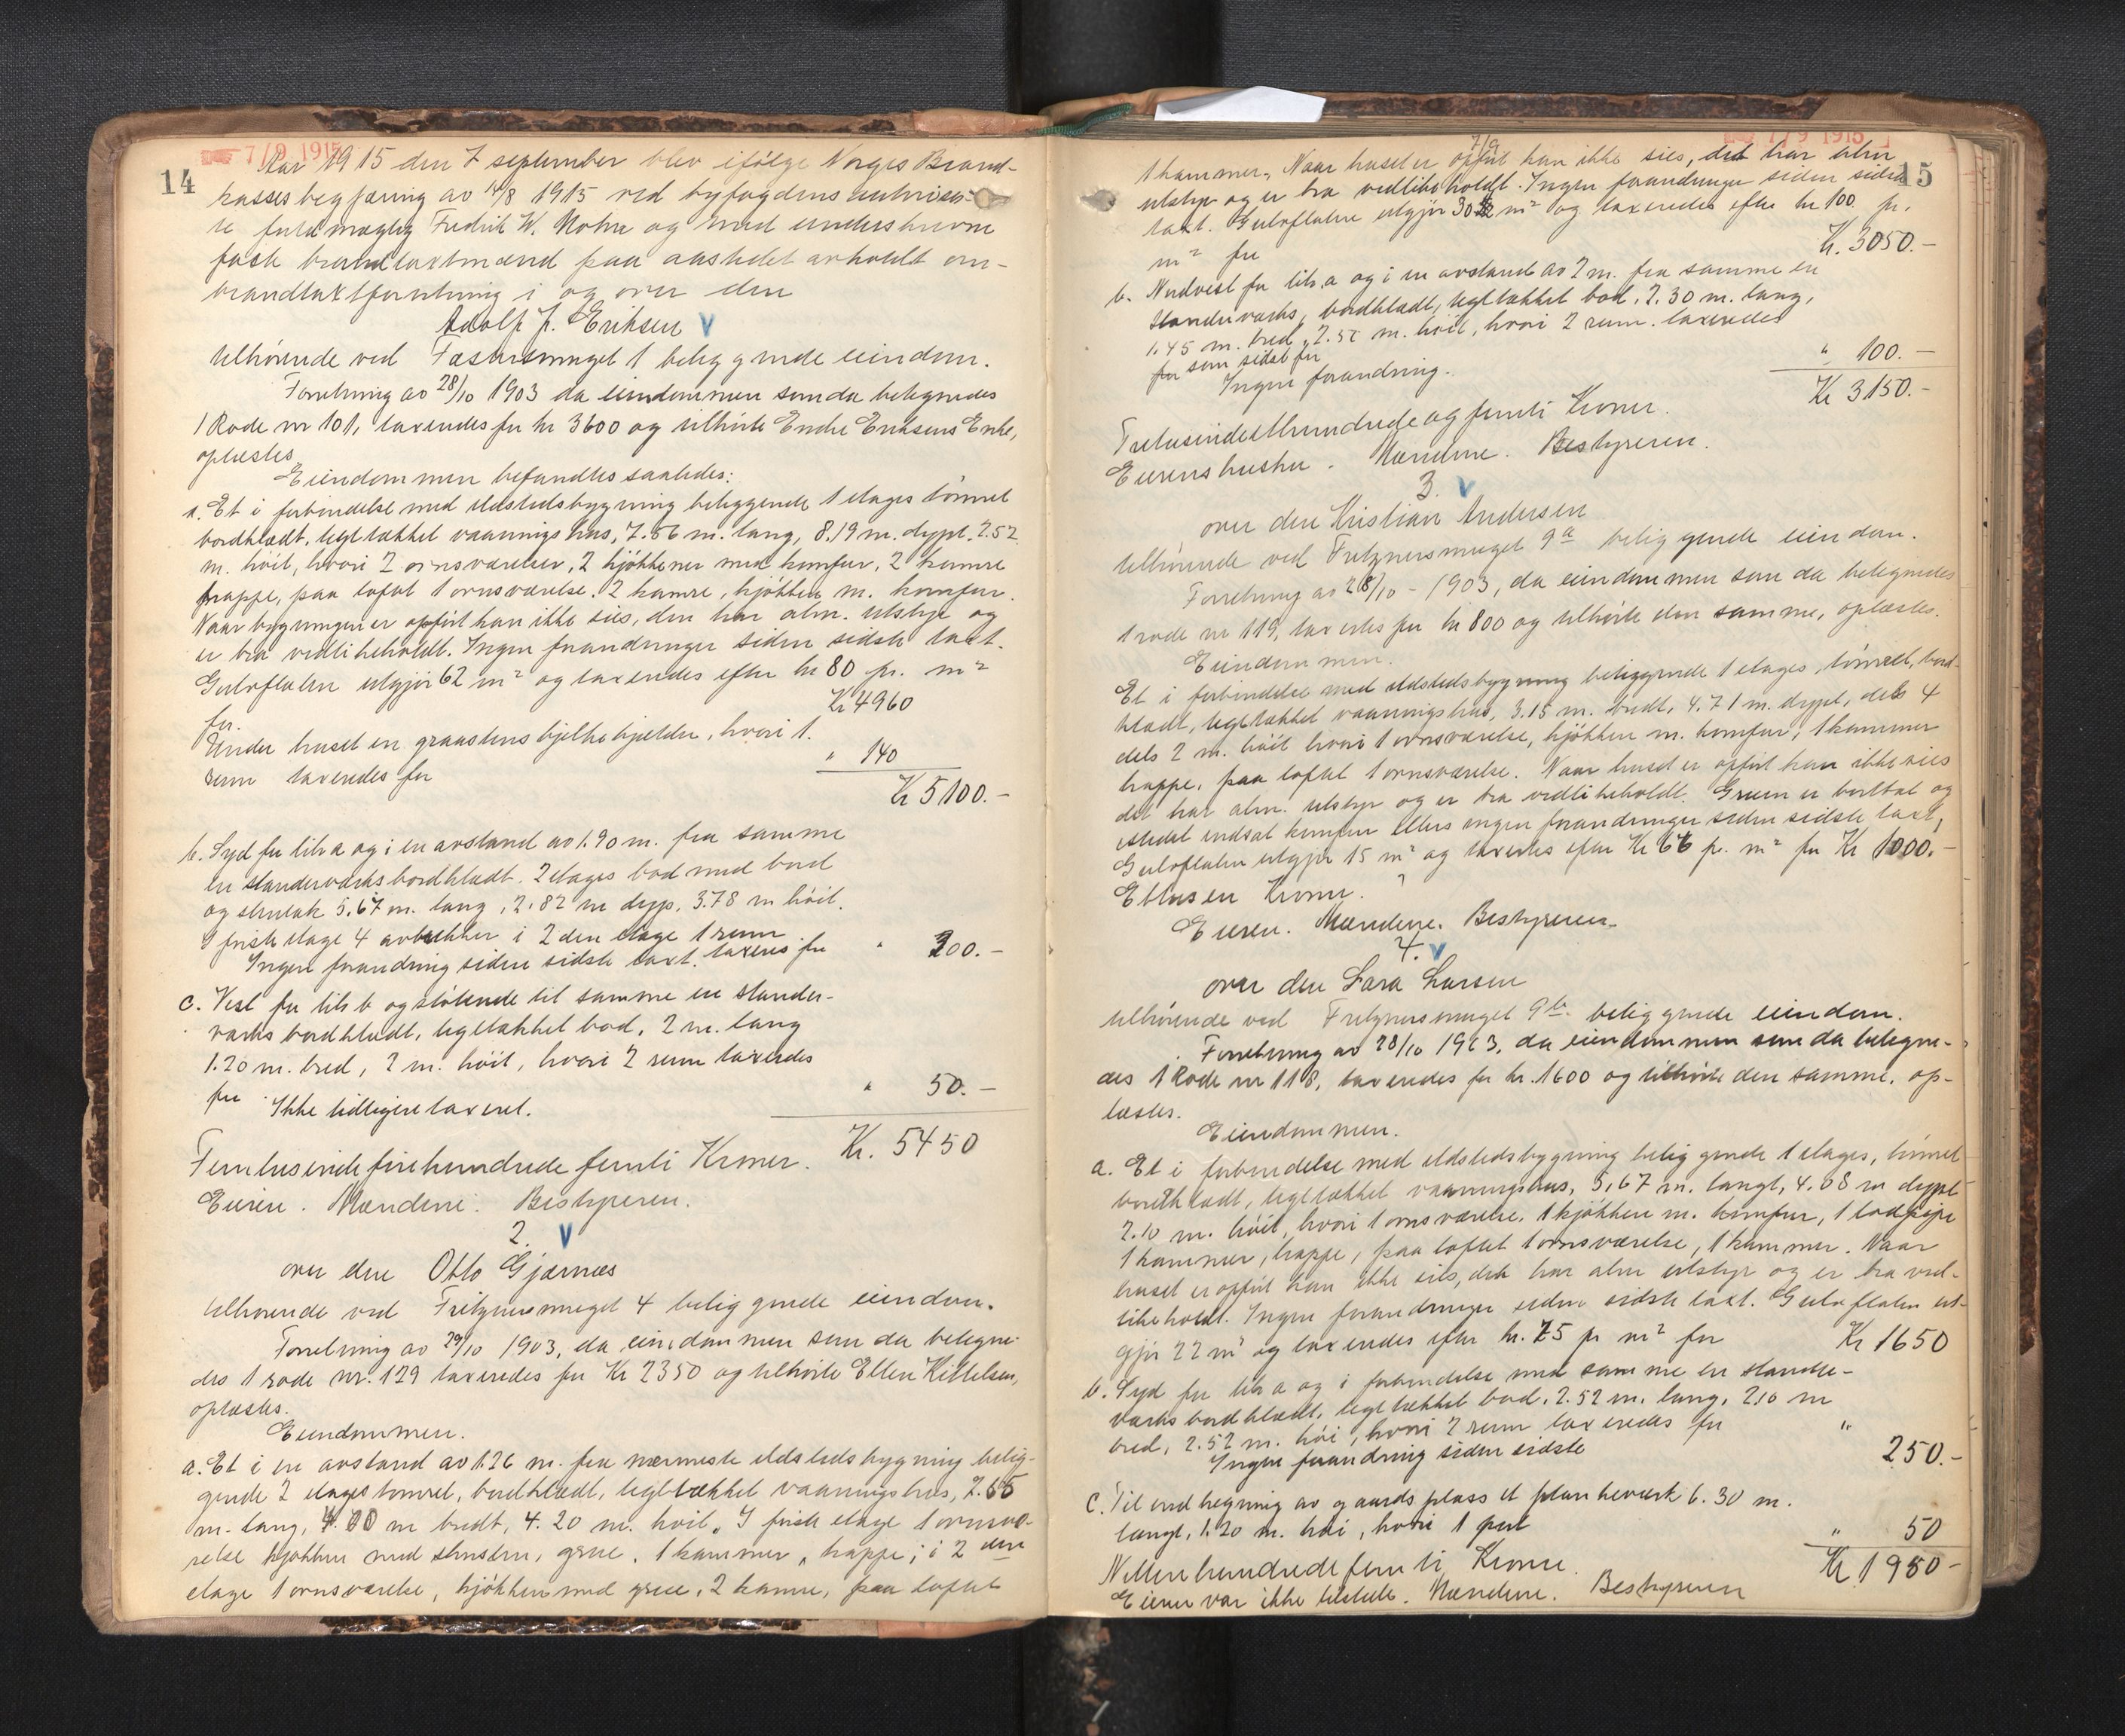 7/9 1915
14
Aar 1915 den 7 september blev ifölge Norges Brand-
kasses begjæring av 14/8 1915 ved byfogdens autoriser-
te fuldmægtig Fredrik W. Mohn og med underskrevne
faste brandtaxtmænd paa aastedet avholdt om-
brandtaxtforretning i og over den
Adolf J. Eriksen V
tilhörende ved Tæsarsmuget 1 beliggende eiendom.
Forretning av 28/10 1903 da eiendommen som da betegnedes
1 Rode nr 101, taxeredes for kr 3600 og tilhörte Endre Eriksens Enke,
oplæstes
Eiendommen befandtes saaledes:
a. Et i forbindelse med ildstedsbygning beliggende 1 etages tömret
bordklædt, tegltækket vaaningshus, 7.56 m. lang, 8.19 m. dypt, 2.52
m. höit, hvori 2 ovnsværelser, 2 kjökkener med komfur, 2 kamre
trappe, paa loftet 1 ovnsværelse, 2 kamre, kjökken m. komfur.
Naar bygningen er opfört kan ikke sies, den har alm. utstyr og
er bra vedlikeholdt. Ingen forandringer siden sidste taxt.
Gulvflaten utgjör 62 m² og taxeredes efter kr 80 pr. m²
for
Kr 4960
Under huset en graastens bjelkekjelder, hvori 1.
rum taxeredes for
" 140
Kr 5100.-
b. Syd for litr a og i en avstand av 1.90 m. fra samme
en standerværks bordklædt. 2 etages bod med bord
og skutak 5.67 m. lang, 2.82 m dyp, 3.78 m höit.
I förste etage 4 avlukker i 2den etage 1 rum
Ingen forandring siden sidste taxt. taxeres for " 300.-
c. Vest for litr b og stötende til samme en stander-
værks bordklædt, tegltækket bod, 2 m. lang
1.20 m. bred, 2 m. höit, hvori 2 rum taxeredes
for " 50.-
Ikke tidligere taxeret.
Femtusindefirehundrede femti Kroner. Kr. 5450
Eieren. Mændene. Bestyreren.
2. V
over den Otto Gjærnæs
tilhörende ved Fritznersmuget 4 beliggende eiendom.
Forretning av 29/10 1903, da eiendommen som da betegne-
des 1 rode nr. 129 taxeredes for Kr 2350 og tilhörte Ellen Kittelsen,
oplæstes.
Eiendommen.
a. Et i en avstand av 1.26 m. fra nærmeste ildstedsbygning belig-
gende 2 etages tömret, bordklædt, tegltækket vaaningshus, 7.55
m. lang, 4.00 m bredt, 4.20 m. höit. I förste etage 1 ovnsvæ-
relse kjökken med skorsten, grue, 1 kammer, trappe; i 2 den
etage 1 ovnsværelse, kjökken med grue, 2 kamre, paa loftet
7/9 1915
15
7/9
1 kammer. Naar huset er opfört kan ikke sies, det har alm
utstyr og er bra vedlikeholdt. Ingen forandringer siden sidste
taxt. Gulvflaten utgjör 30½ m² og taxeredes efter kr 100 pr.
m² for
Kr. 3050.-
b. Nordvest for litr. a og i en avstand av 2 m. fra samme en
standerværks, bordklædt, tegltækket bod, 2.30 m. lang,
1.45 m. bred, 2.52 m. höit, hvori 2 rum. taxeredes
for som sidst for
" 100.-
Ingen forandring.
Kr 3150.-
Tretusindeethundrede og femti Kroner.
Eierens hustru. Mændene. Bestyreren.
3. V
over den Kristian Andersen
tilhörende ved Fritznersmuget 9a beliggende eiendom.
Forretning av 28/10 - 1903, da eiendommen som da betegnedes
1 rode nr 119, taxertes for kr 800 og tilhörte den samme, oplæstes.
Eiendommen.
Et i forbindelse med ildstedsbygning beliggende 1 etages, tömret, bord-
klædt, tegltækket vaaningshus, 3.15 m. bredt, 4.71 m. dypt, dels 4
dels 2 m. höit hvori 1 ovnsværelse, kjökken m. komfur, 1 kammer
trappe, paa loftet 1 ovnsværelse. Naar huset er opfört kan ikke sies
det har alm. utstyr og er bra vedlikeholdt. Gruen er borttat og
istedet indsat komfur ellers ingen forandringer siden sidste taxt,
Gulvflaten utgjör 15 m² og taxertes efter Kr 66 pr. m² for Kr 1000.-
Ettusen Kroner.
Eieren. Mændene. Bestyreren.
4. V
over den Lara Larsen
tilhörende ved Fritznersmuget 9b. beliggende eiendom.
Forretning av 28/10 1903, da eiendommen som da betegne-
des 1 Rode nr 118, taxeredes for kr. 1600 og tilhörte den samme, op-
læstes.
Eiendommen.
a. Et i forbindelse med ildstedsbygning beliggende 1 etages, tömret
bordklædt, tegltækket vaaningshus, 5.67 m. langt, 4.08 m dypt
2.10 m. höit, hvori 1 ovnsværelse, 1 kjökken m. komfur, 1 lodpipe
1 kammer, trappe, paa loftet 1 ovnsværelse, 1 kammer. Naar
huset er opfört kan ikke sies, det har alm utstyr og er bra ved-
likeholdt. Ingen forandringer siden sidste taxt. Gulvflaten ut-
gjör 22 m² og taxeredes efter kr. 75 pr m² for Kr 1650
b. Syd for litr a og i forbindelse med samme en stander-
værks bordklædt, tegltækket bod, 2.52 m. lang, 2.10 m
bred, 2.52 m. höi, hvori 2 rum taxeredes for "
Ingen forandring siden sidste 250.-
c. Til indhegning av gaards plass et plankeværk 6.30 m.
langt, 1.20 m. höi, hvori 1 port
" 50
Nittenhundredefemti Kroner. Kr 1950-
Eieren var ikke tilstede. Mændene. Bestyreren